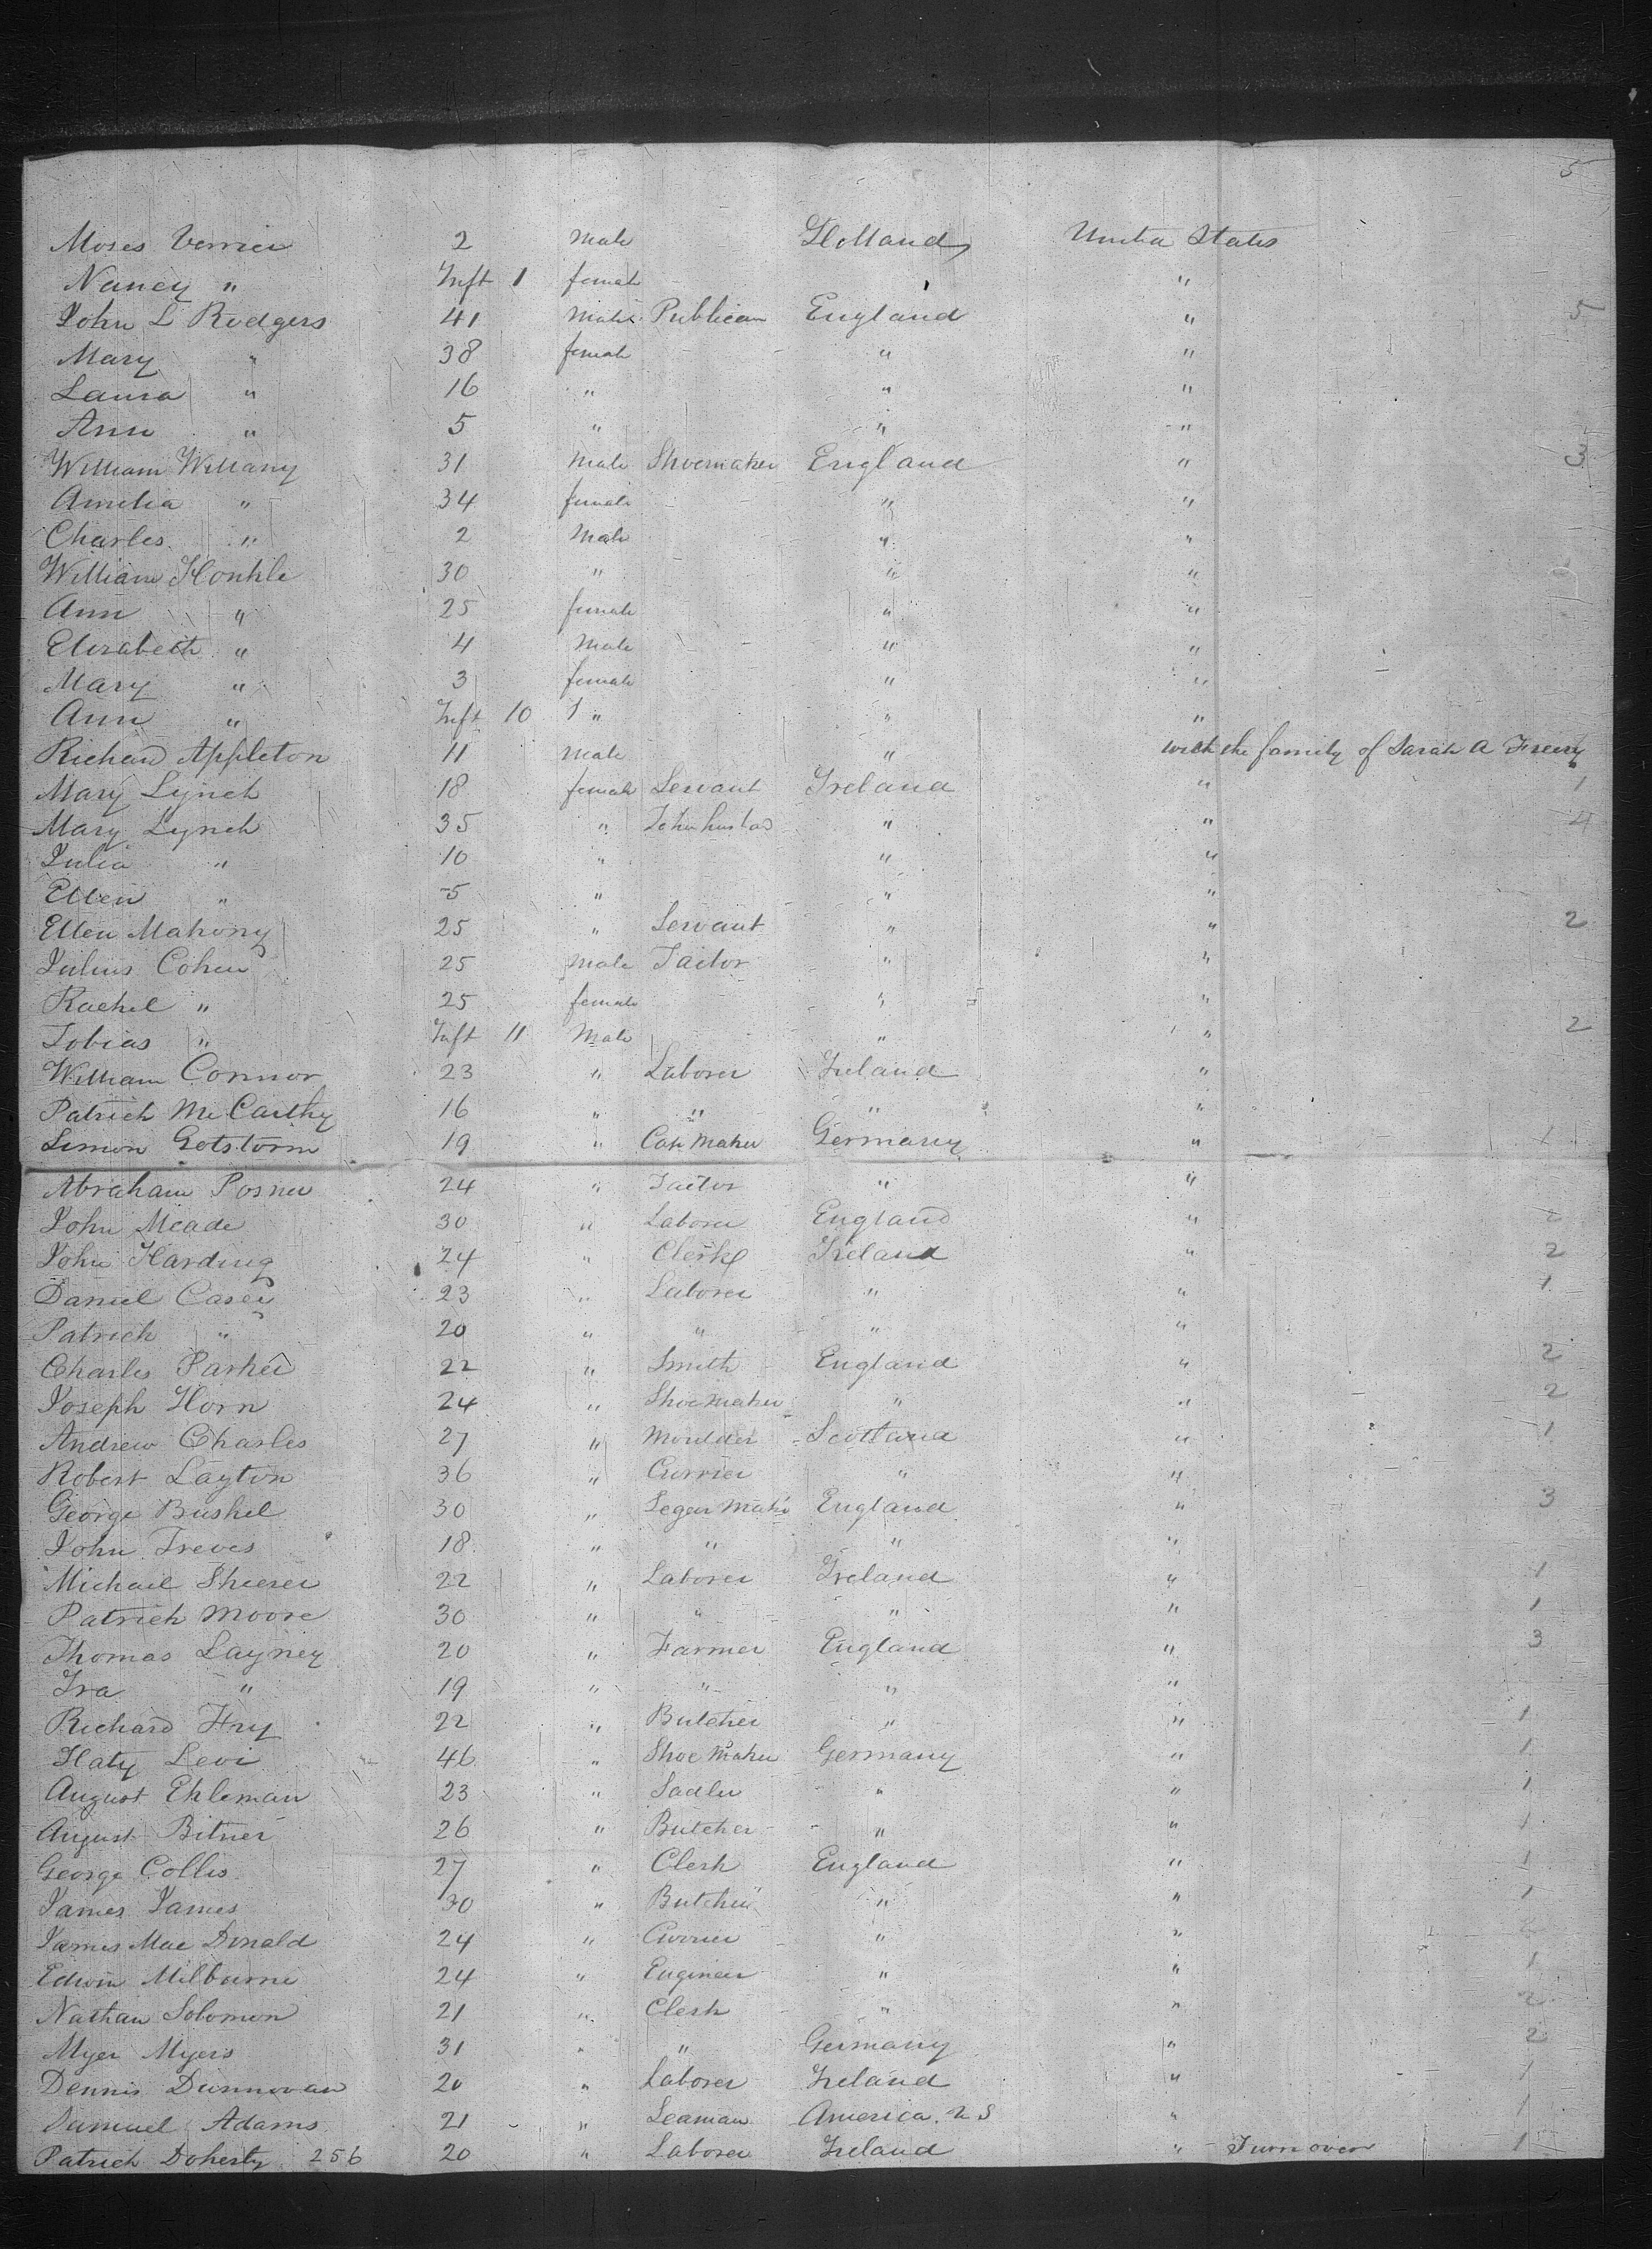 5
Moses Verrier 2 Male Holland United States
Nancy " Inft 1 female "
John L Rodgers 41 Male Publican England " 5
Mary " 38 female " "
Laura " 16 " " "
Ann " 5 " " "
William Willany 31 Male Shoemaker England " 3
Amelia " 34 female " "
Charles " 2 Male " "
William Honkle 30 " " "
Ann " 25 female " "
Elizabeth " 4 Male " "
Mary " 3 female " "
Ann " Inft 10 " " "
Richard Appleton 11 Male " with the family of Sarah A
Mary Lynch 18 female Servant Ireland " 1
Mary Lynch 35 " " " 4
Julia " 10 " " "
Ellen " 5 " " "
Ellen Mahony 25 " Servant " " 2
Julius Cohen 25 Male Tailor " "
Rachel " 25 female " "
Tobias " Inft 11 Male " " 2
William Connor 23 " Laborer Ireland "
Patrick McCarthy 16 " " " "
Simon Gotstorm 19 " Cap Maker Germany " 1
Abraham Posner 24 " Tailor " "
John Meade 30 " Laborer England " 2
John Harding 24 " Clerk Ireland " 2
Daniel Casey 23 " Laborer " " 1
Patrick " 20 " " " "
Charles Parker 22 " Smith England " 2
Joseph Horn 24 " Shoe Maker " " 2
Andrew Charles 27 " Moulder Scotland " 1
Robert Layton 36 " Currier " "
George Bushel 30 " Segar Makr England " 3
John Treves 18 " " " "
Michael Sheerer 22 " Laborer Ireland " 1
Patrick Moore 30 " " " " 1
Thomas Layney 20 " Farmer England " 3
Ira " 19 " " " "
Richard Fry 22 " Butcher " " 1
Haty Levi 46 " Shoe Maker Germany " 1
August Ehleman 23 " Sadler " " 1
August Bitner 26 " Butcher " " 1
George Collis 27 " Clerk England " 1
James James 30 " Butcher " " 1
James Mac Donald 24 " Currier " " 2
Edwin Milburne 24 " Engineer " " 1
Nathan Solomon 21 " Clerk " " 2
Myer Myers 31 " " Germany " 2
Dennis Dunnovan 20 " Laborer Ireland " 1
Samuel Adams 21 " Seaman America. U S " 1
Patrick Doherty 256 20 " Laborer Ireland " Turn over 1